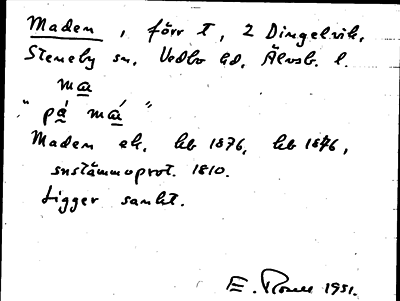 Maden, förr t, 2 Dingelvik,
Steneby sn, Vedbo hd, Älvsb. l.
ma
"på má"
Maden ek. hb 1876, hb 1846,
snstämmoprot. 1810.
Ligger sankt.
E. 1951.